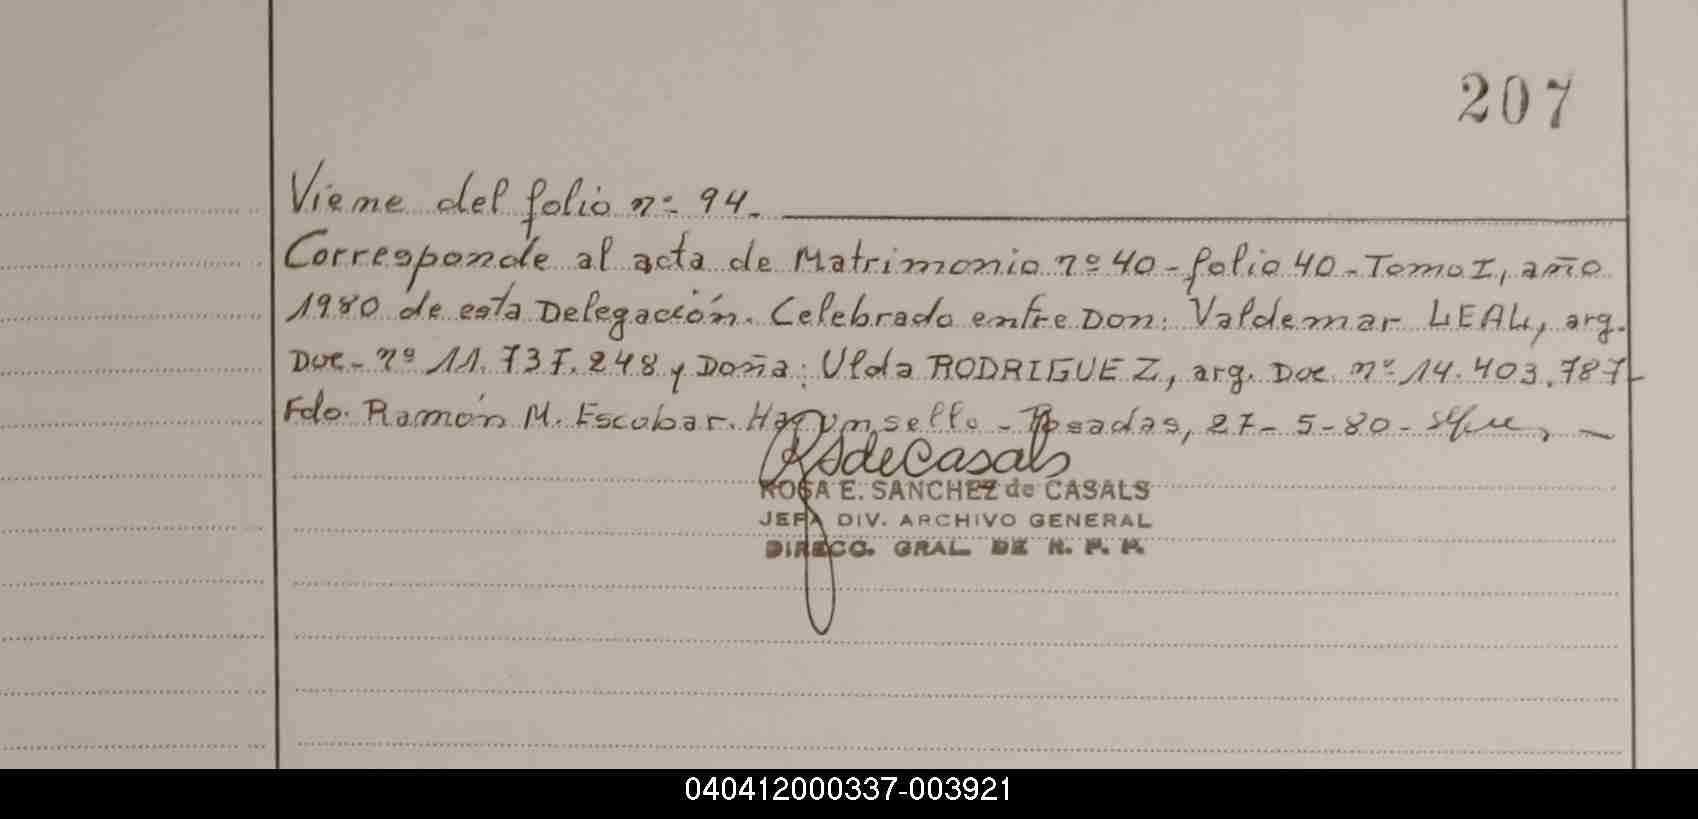 207
Viene del folio nº 94.
Corresponde al acta de Matrimonio nº 40 - folio 40 - Tomo I, año
1980 de esta Delegación. Celebrado entre Don: Valdemar LEAL, arg.
Doc. nº 11.737.248 y Doña: Ulda RODRIGUEZ, arg. Doc. nº 14.403.787-
Fdo. Ramón M. Escobar. Hay un sello - Posadas, 27-5-80-
RSdeCasals
ROSA E. SANCHEZ de CASALS
JEFA DIV. ARCHIVO GENERAL
DIRECC. GRAL. DE R. P. P.
040412000337-003921